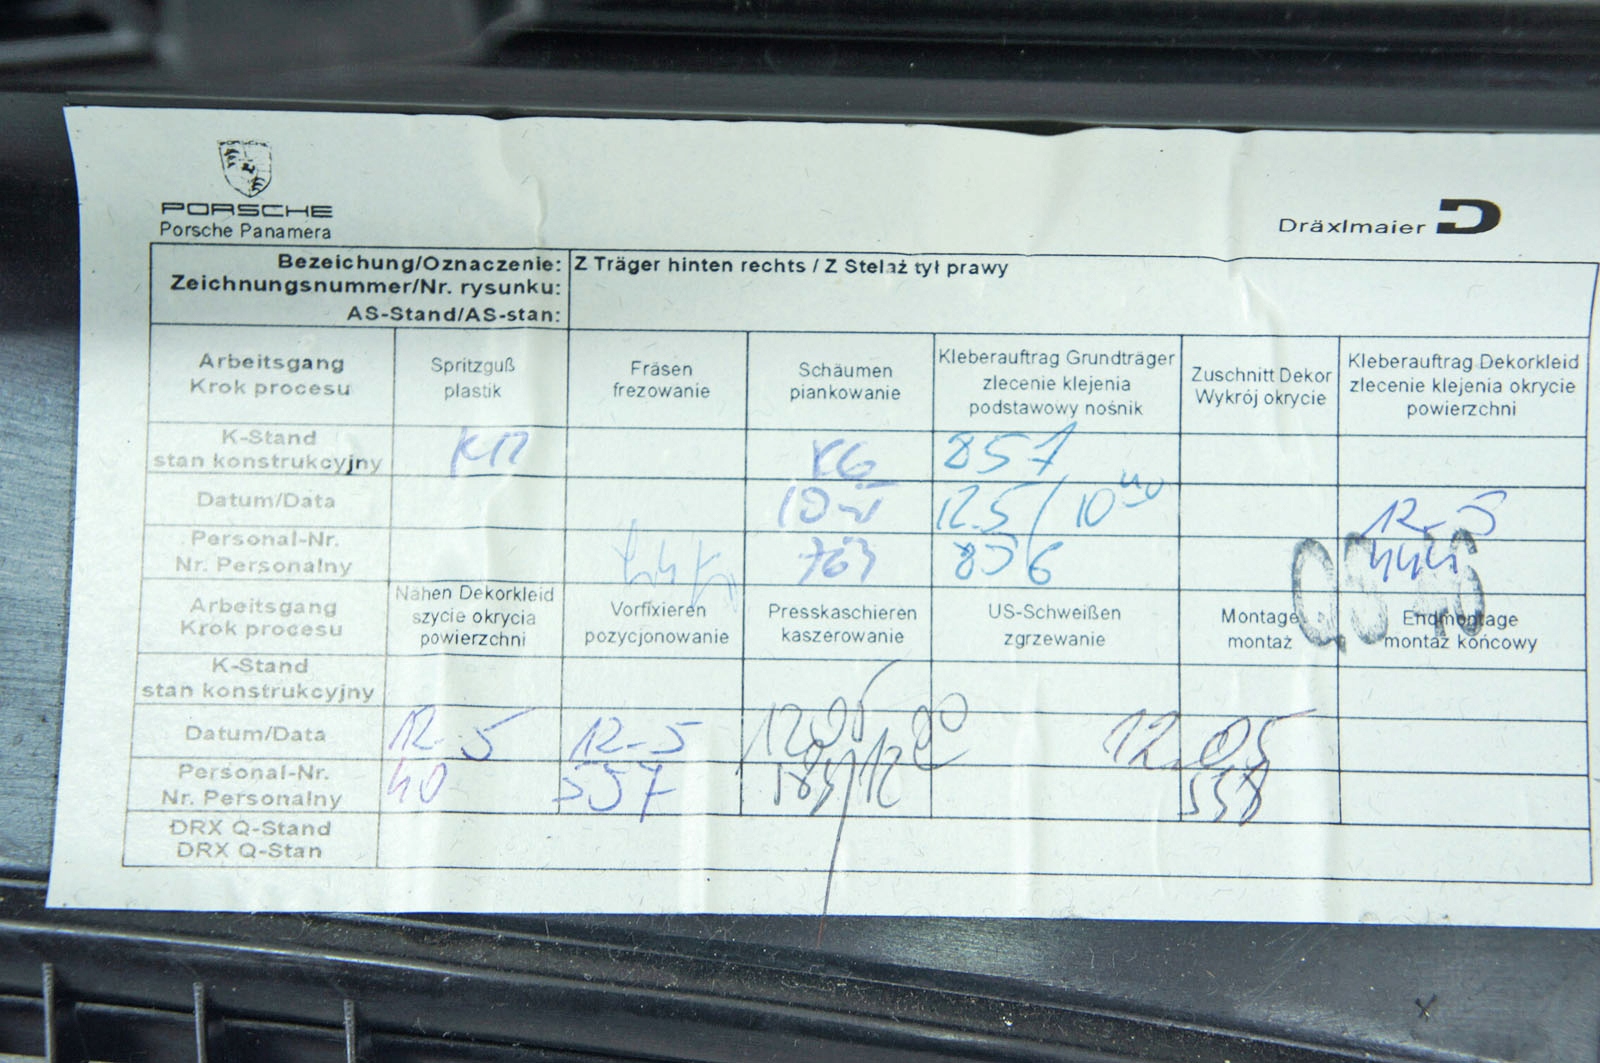 PORSCHE
Porsche Panamera
Dräxlmaier
Bezeichung/Oznaczenie: Z Träger hinten rechts / Z Stelaż tył prawy
Zeichnungsnummer/Nr. rysunku:
AS-Stand/AS-stan:
Arbeitsgang
Krok procesu
Spritzguß
plastik
Fräsen
frezowanie
Schäumen
piankowanie
Kleberauftrag Grundträger
zlecenie klejenia
podstawowy nośnik
Zuschnitt Dekor
Wykrój okrycie
Kleberauftrag Dekorkleid
zlecenie klejenia okrycie
powierzchni
K-Stand
stan konstrukcyjny
857
Datum/Data
12.5 / 10
12-5
Personal-Nr.
Nr. Personalny
763
856
444
Arbeitsgang
Krok procesu
Nähen Dekorkleid
szycie okrycia
powierzchni
Vorfixieren
pozycjonowanie
Presskaschieren
kaszerowanie
US-Schweißen
zgrzewanie
Montage
montaż
Endmontage
montaż końcowy
K-Stand
stan konstrukcyjny
Datum/Data
12-5
12-5
12.05
12.05
Personal-Nr.
Nr. Personalny
40
557
558
DRX Q-Stand
DRX Q-Stan